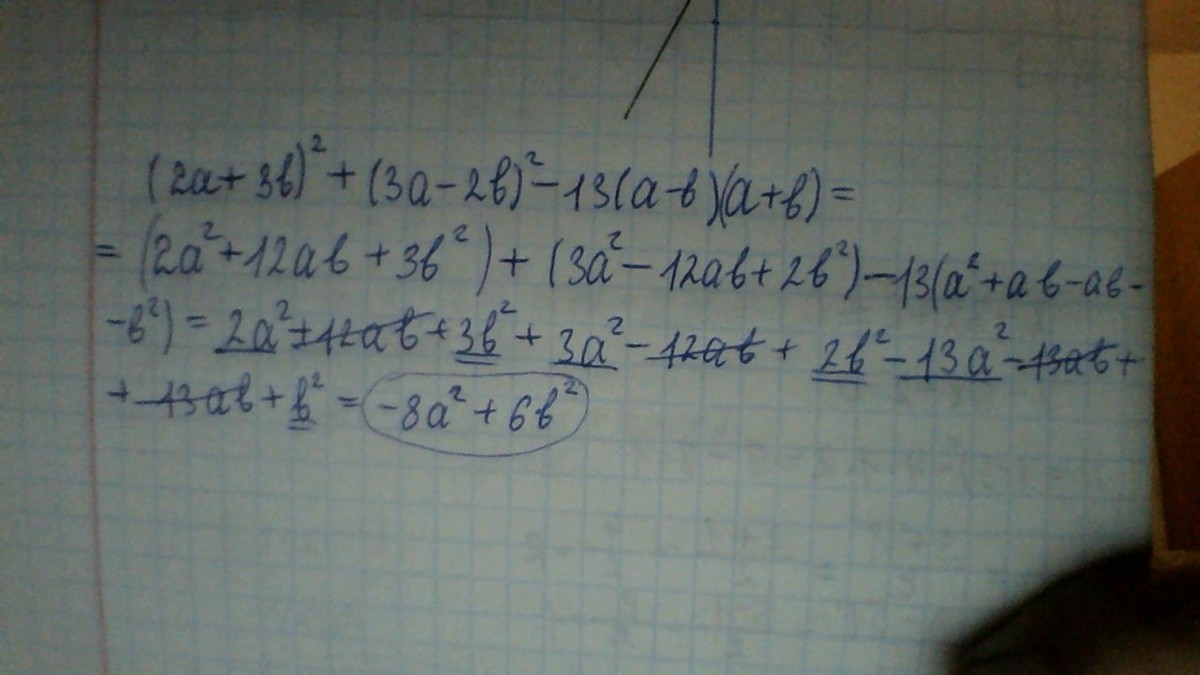 (2a+3b)²+(3a-2b)²-13(a-b)(a+b)=
=(2a²+12ab+3b²)+(3a²-12ab+2b²)-13(a²+ab-ab-
-b²)=2a²+12ab+3b²+3a²-12ab+2b²-13a²-13ab+
+13ab+b²=-8a²+6b²